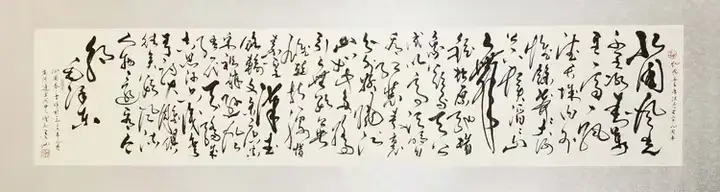 北国风光
千里冰封万
里雪飘
望长城内外
惟余莽莽大河
上下顿失滔滔山
舞
银蛇原驰蜡
象欲与天公
试比高须晴日
看红装素裹
分外妖娆江
山如此多娇
引无数英雄
竞折腰惜
秦皇汉武
略输文采唐宗
宋祖稍逊风骚
一代天骄成
吉思汗只识弯
弓射大雕俱
往矣数风流
人物还看今
朝
毛泽东